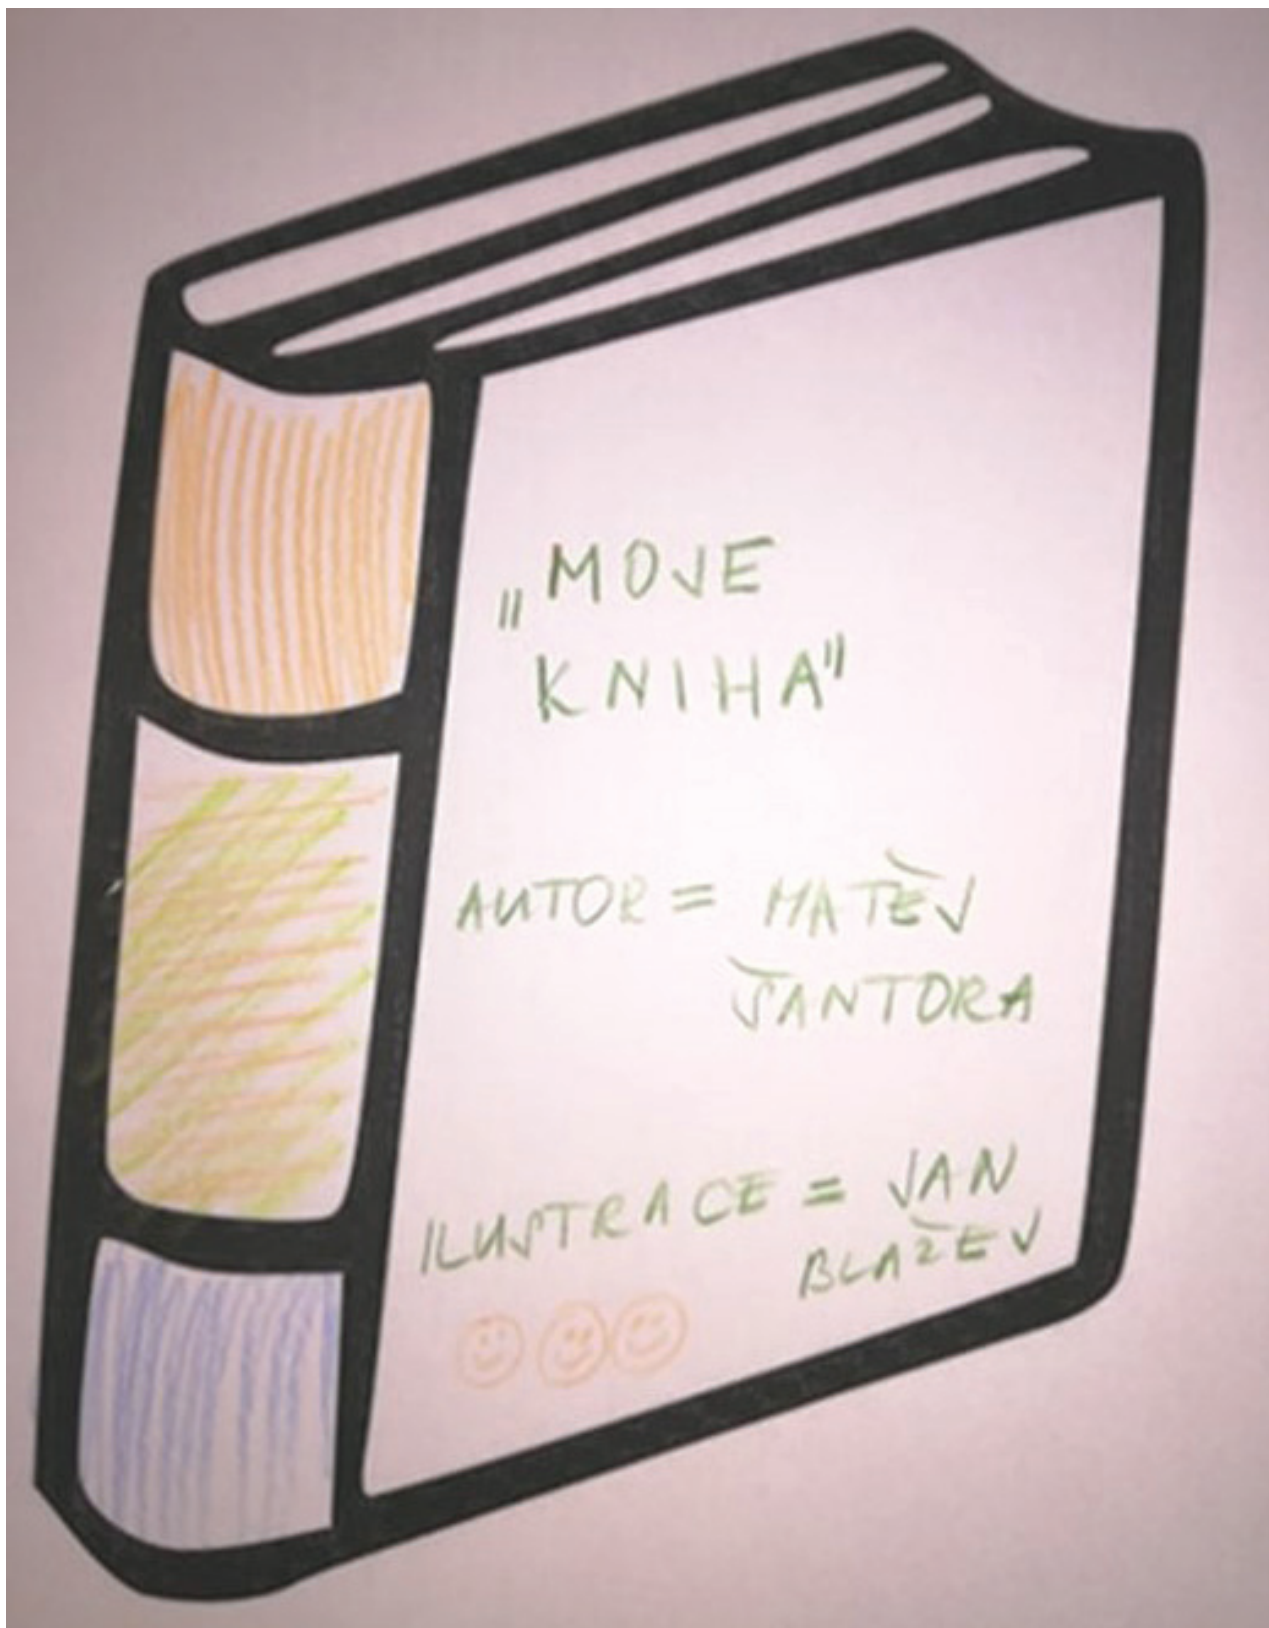 „MOJE
KNIHA"
AUTOR = MATĚJ
ŠANTORA
ILUSTRACE = JAN
BLAŽEJ